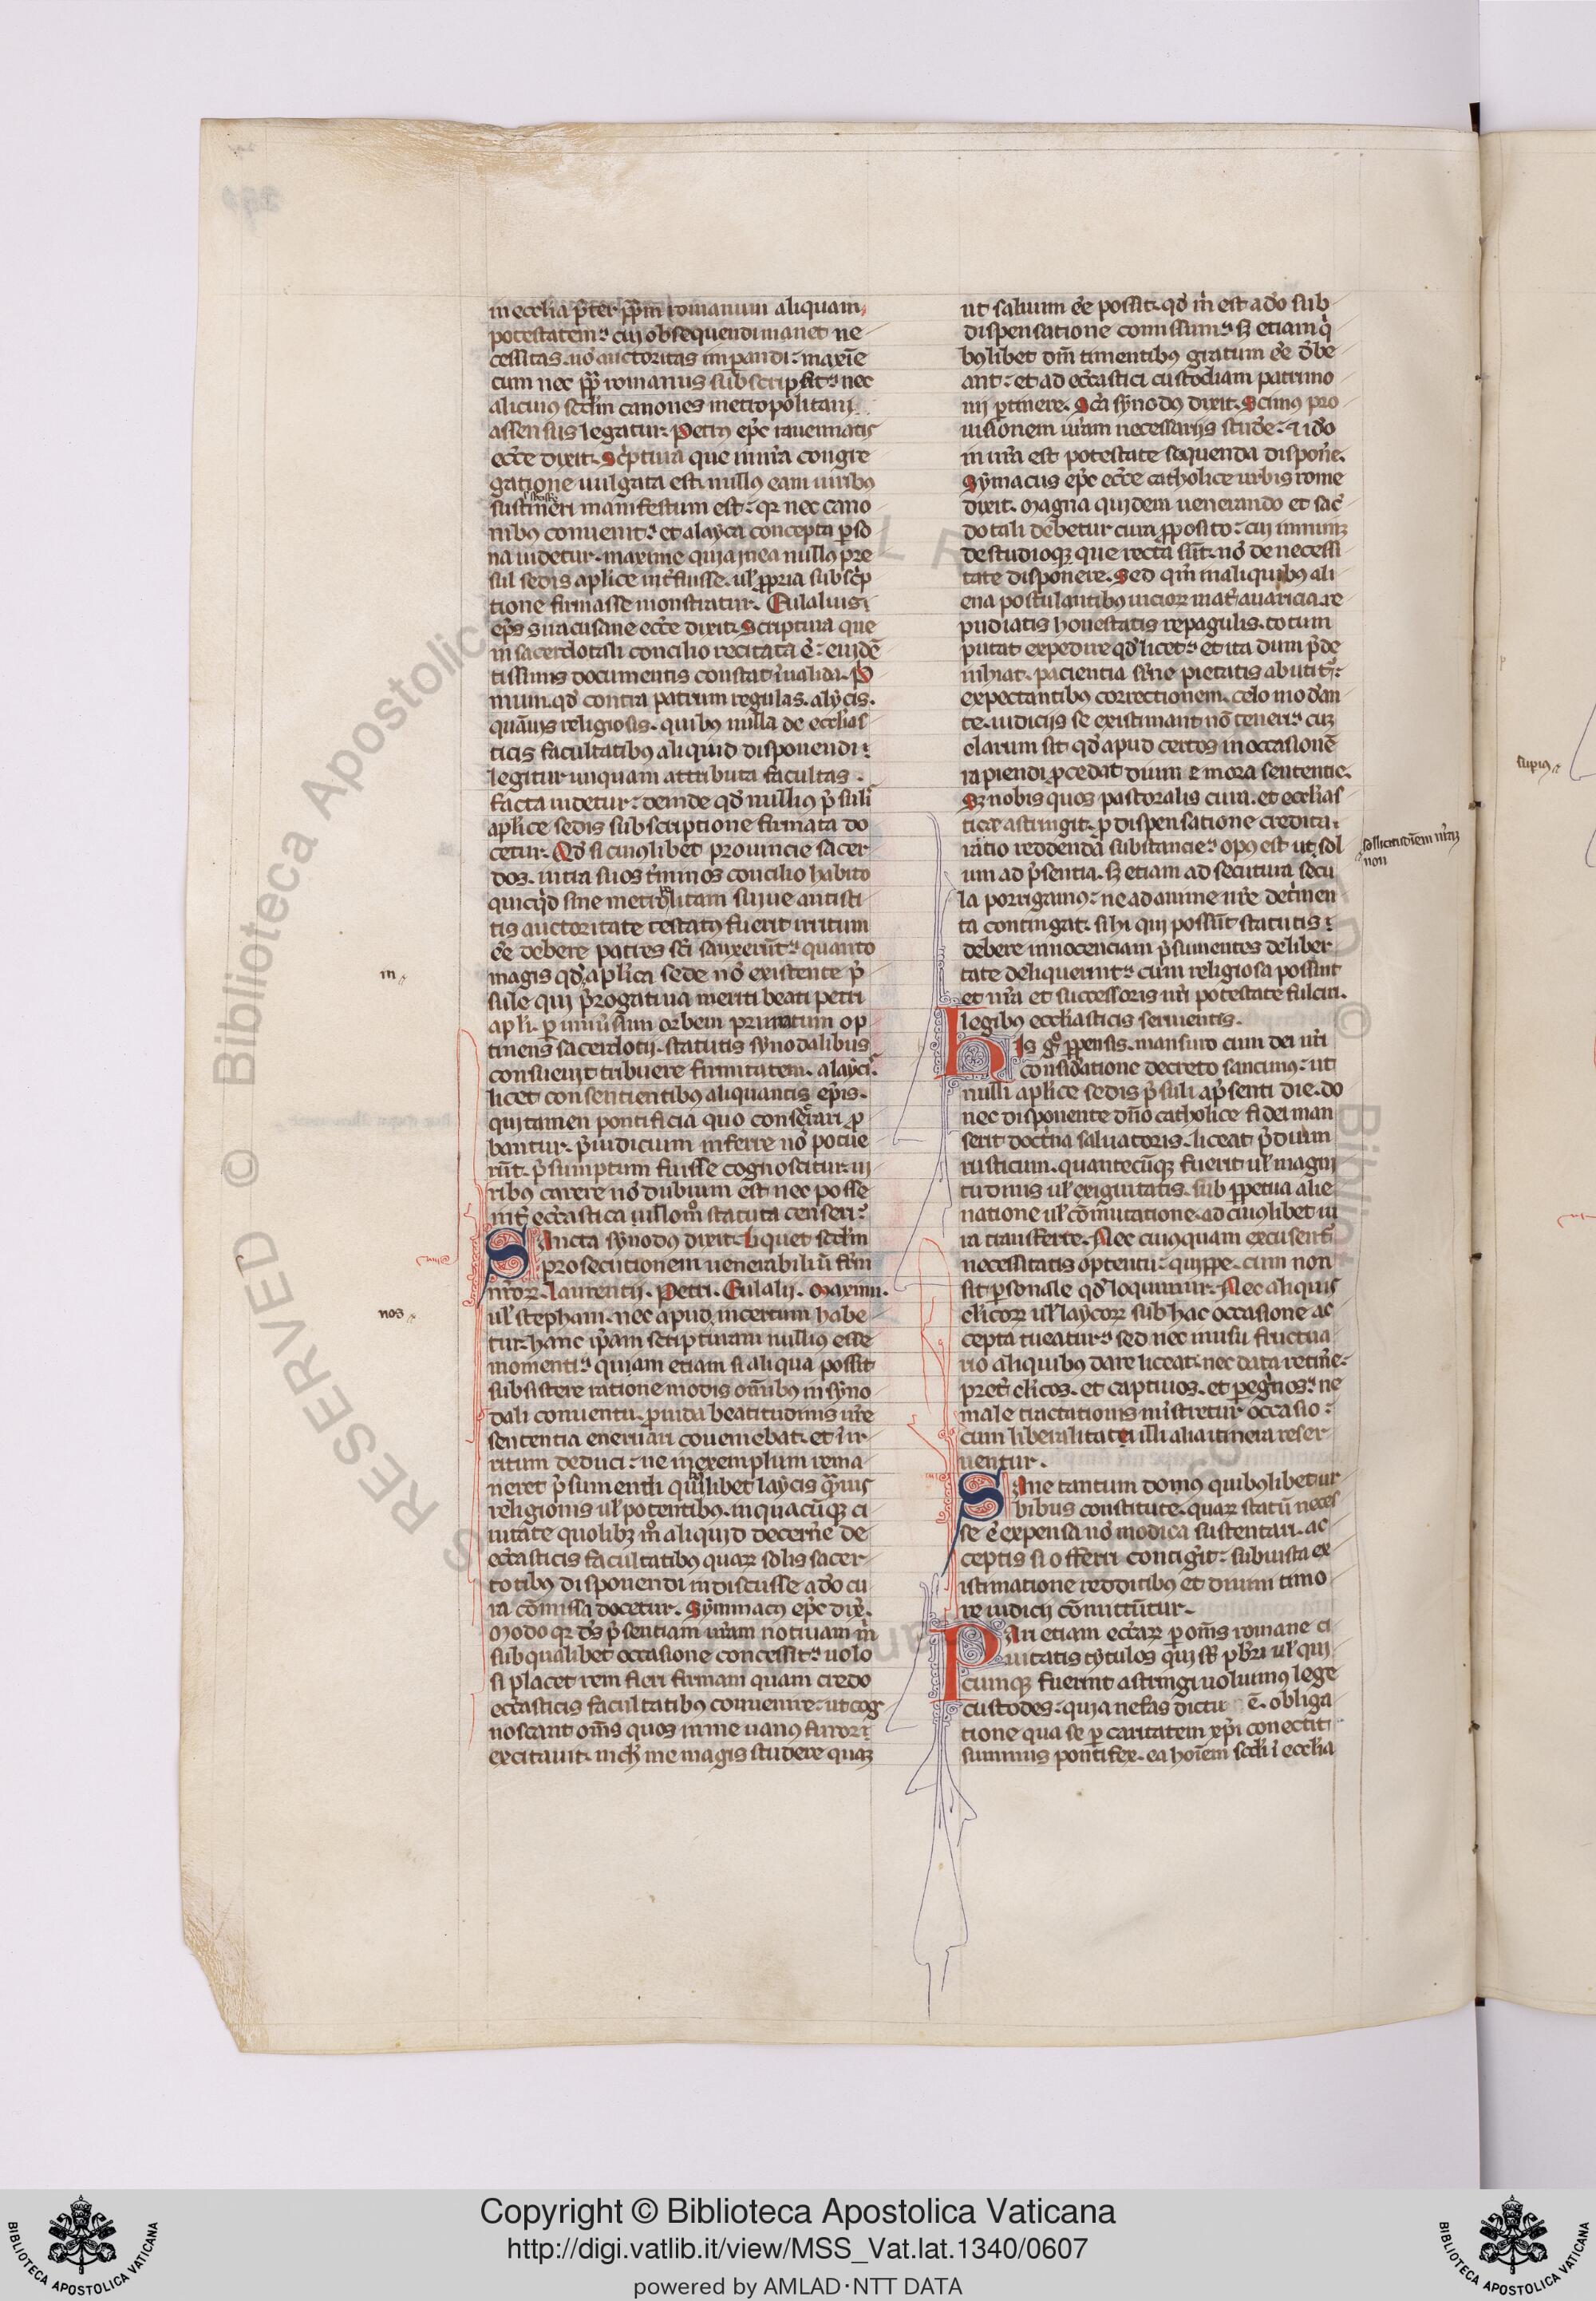 in ecclia p̄ter pp̄am romanum aliquam
potestatem. cuj obsequendi manet ne
cessitas. nō auctoritas imp̄andi. maxīe
cum nec pp̄ romanus subscripsit. nec
alicuius scdm̄ canones metropolitani
assensus legatur. Petrus ep̄c rauennatis
ecc̄e dixit. Sc̄ptura que in nr̄a congre
gatione uulgata est. nullus eam uiribus
sustineri manifestum est. qr nec cano
nibus conuenit. et a layca concepta p̄so
na uidetur. maxime quia in ea nullus pre
sul sedis aplice int̄fuisse. ul̄ ppria subsc̄p
tione firmasse monstratur. Eulalius
ep̄s siracusane ecc̄e dixit. Scriptura que
in sacerdotali concilio recitata ē. euidē
tissimis documentis constat īualida. P̄
mum. qd̄ contra patrum regulas. a laycis.
quāuis religiosis. quibus nulla de eccl̄ias
ticis facultatibus aliquid disponendi
legitur unquam attributa facultas.
facta uidetur. deinde qd̄ nullius p̄sulis
aplice sedis subscriptione firmata do
cetur. Qd̄ si cuiuslibet prouincie sacer
dos. intra suos t̄minos concilio habito
quicq̄d sine metropolitani suiue antisti
tis auctoritate testatus fuerit irritum
eē debere patres sc̄i sanxerūt. quanto
magis qd̄ aplica sede nō existente p̄
in
sule qui p̄rogatiua meriti beati petri
apl̄i. p uniūsum orbem primatum op
tinens sacerdotij. statutis synodalibus
consueuit tribuere firmitatem. a laycis
licet consentientibus aliquantis ep̄is.
qui tamen pontificia quo consecrari p
bantur. p̄iudicium inferre nō potue
rūt. p̄sumptum fuisse cognoscitur. ui
ribus carere nō dubium est. nec posse
int̄ ecc̄astica ullom̊ statuta censeri.
Sancta synodus dixit. Liquet scdm̄
prosecutionem uenerabiliū fr̄m
nr̄orz. Laurentij. Petri. Eulalij. Maximi.
ul̄ stephani. nec apud incertum habe
nos
tur. hanc ip̄am scripturam nullius esse
momenti. quam etiam si aliqua possit
subsistere ratione modis om̄ibus in syno
dali conuentu. puida beatitudinis ur̄e
sententia eneruari coueniebat. et in ir
ritum deduci. ne in exemplum rema
neret p̄sumendi quibuslibet laycis q̄muis
religiosis ul̄ potentibus. in quacūqz ci
uitate quolibz m̊ aliquid decern̄e de
ecc̄asticis facultatibus quarz solis sacer
totibus disponendi indiscusse a dō cu
ra cōmissa docetur. Symmacus ep̄c dix̄.
Modo qr ds̄ p̄sentiam ur̄am uotiuam m̄
sub qualibet occasione concessit. uolo
si placet rem fieri firmam quam credo
ecc̄asticis facultatibus conuenire. ut cog
noscant om̄s quos in me uanus furor
excitauit. nich̄ me magis studere quaz
ut saluum eē possit. qd̄ m̄ est a dō sub
dispensatione comissum. sz etiam q̄
buslibet dm̄ timentibus gratum eē d̄be
ant. et ad ecc̄astici custodiam patrimo
nij p̄tinere. Sc̄a synodus dixit. Scimus pro
uisionem ur̄am necessarijs studē. et idō
in ur̄a est potestate sequenda dispon̄e.
Symacus ep̄c ecc̄e catholice urbis rome
dixit. Magna quidem uenerando et sac̄
dotali debetur cura pposito. cui inminz
de studioqz que recta sūt. nō de necessi
tate disponere. Sed qm̄ in aliquibus ali
ena postulantibus uiciorz mat̄ auaricia. re
pudiatis honestatis repagulis. totum
putat expedire qd̄ licet. et ita dum p̄de
inhiat. pacientia sr̄ne pietatis abutit̄.
expectantibus correctionem. celo mod̄an
te. iudicijs se existimant nō teneri. cuz
clarum sit qd̄ apud certos in occasionē
rapiendi pcedat diuine mora sententie.
Sz nobis quos pastoralis cura. et eccl̄ias
tice astringit. p dispensatione credita.
ratio reddenda substancie. opus est ut sol
sollicitudīem nr̄az
non
um ad p̄sentia. sz etiam ad secutura secu
la porrigamus. ne ad anime nr̄e det̄men
ta contingat. si hi qui possūt statutis
debere innocenciam p̄sumentes de liber
tate deliquerint. cum religiosa possint
et nr̄a et successoris nr̄i potestate fulciri.
legibus eccl̄iasticis seruientis.
His g̊ ppensis. mansuro cum dei nr̄i
consid̄atione decreto sancimus. ut
nulli aplice sedis p̄suli a p̄senti die. do
nec disponente dn̄o catholice fidei man
serit doct̄na saluatoris. liceat p̄dium
rusticum. quantecūqz fuerit ul̄ magni
tudinis ul̄ exiguitatis. sub ppetua alie
natione ul̄ cōmutatione. ad cuiuslibet iu
ra transferre. Nec cuiusquam excusent̄
necessitatis optentu. quippe. cum non
sit p̄sonale qd̄ loquimur. Nec aliquis
cl̄icorz ul̄ laycorz sub hac occasione ac
cepta tueatur. sed nec in usu fructua
rio aliquibus dare liceat. nec data retin̄e.
pret̄ cl̄icos. et captiuos. et p̄eḡnos. ne
male tractationis mīstretur occasio.
cum liberalitate illi alia itinera reser
uentur.
Sane tantum domus quibuslibet ur
bibus constitute. quarz statū neces
se ē expensa nō modica sustentari. ac
ceptis si offerri contiḡit. sub iusta ex
istimatione redditibus et diuini timo
re iudicij cōmittūtur.
Pari etiam ecc̄arz p om̄s romane ci
uitatis tytulos qui sūt p̄bri ul̄ qui
cumqz fuerint astringi uolumus lege
custodes. quia nefas dictu ē. obliga
tione qua se p caritatem xp̄i conectit
summus pontifex. ea hoīem sc̄di ī eccl̄ia
Copyright © Biblioteca Apostolica Vaticana
http://digi.vatlib.it/view/MSS_Vat.lat.1340/0607
powered by AMLAD·NTT DATA
BIBLIOTECA APOSTOLICA VATICANA
BIBLIOTECA APOSTOLICA VATICANA